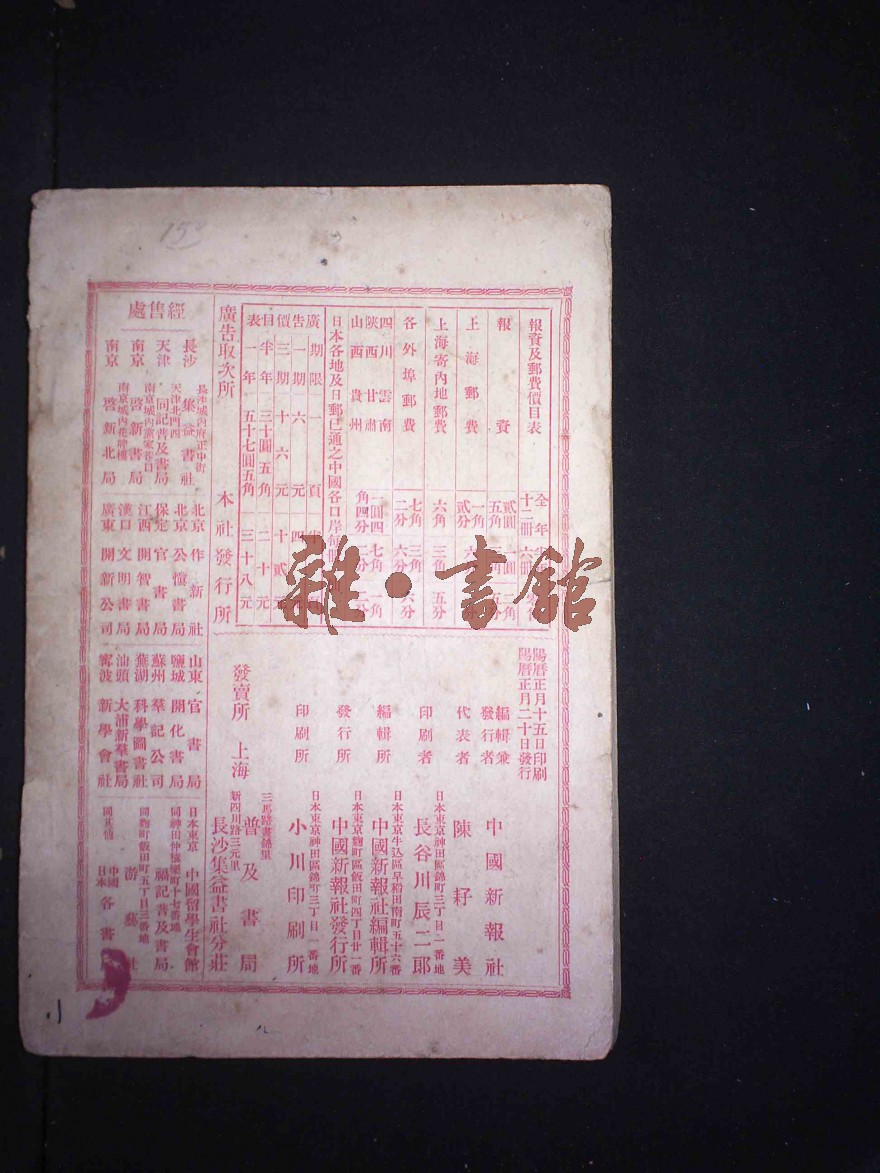 報資及郵費價目表
全年
十二冊
六冊
報資
貳圓五角
上海郵費
一角貳分
上海寄內地郵費
六角
三角
五分
各外埠郵費
七角二分
四川雲南
陝西甘肅
山西貴州
一圓四角四分
日本各地及日郵已通之中國各口岸
廣告價目表
期限
一頁
一期
六元
三期
十六元
十貳元
半年
三十圓五角
二十元
一年
五十七圓五角
三十八元
廣告取次所
本社發行所
陽曆正月十五日印刷
陽曆正月二十日發行
編輯兼發行者
中國新報社
代表者
陳籽美
印刷者
日本東京神田區錦町三丁目一番地
長谷川辰二郎
編輯所
日本東京牛込區早稻田南町五十六番
中國新報社編輯所
發行所
日本東京麴町區飯田町四丁目廿一番
中國新報社發行所
印刷所
日本東京神田區錦町三丁目一番地
小川印刷所
發賣所
上海
三馬路書錦里
普及書局
新四川路三元里
長沙集益書社分莊
經售處
長沙
長沙城內府正中街
集益書社
天津
天津北門西
同記普及書局
南京
啓新書局
南京
啓新北局
北京作新社
北京公愼書局
保定官書局
江西開智書局
漢口文明書局
廣東開新公司
山東官書局
鹽城開化書局
蘇州羣記公司
蕪湖科學圖書社
汕頭大浦新羣書局
寧波新學會社
日本東京
中國留學生會館
福記普及書局
同麴町飯田町五丁目三番地
游藝社
中國
日本
各書
雜·書館